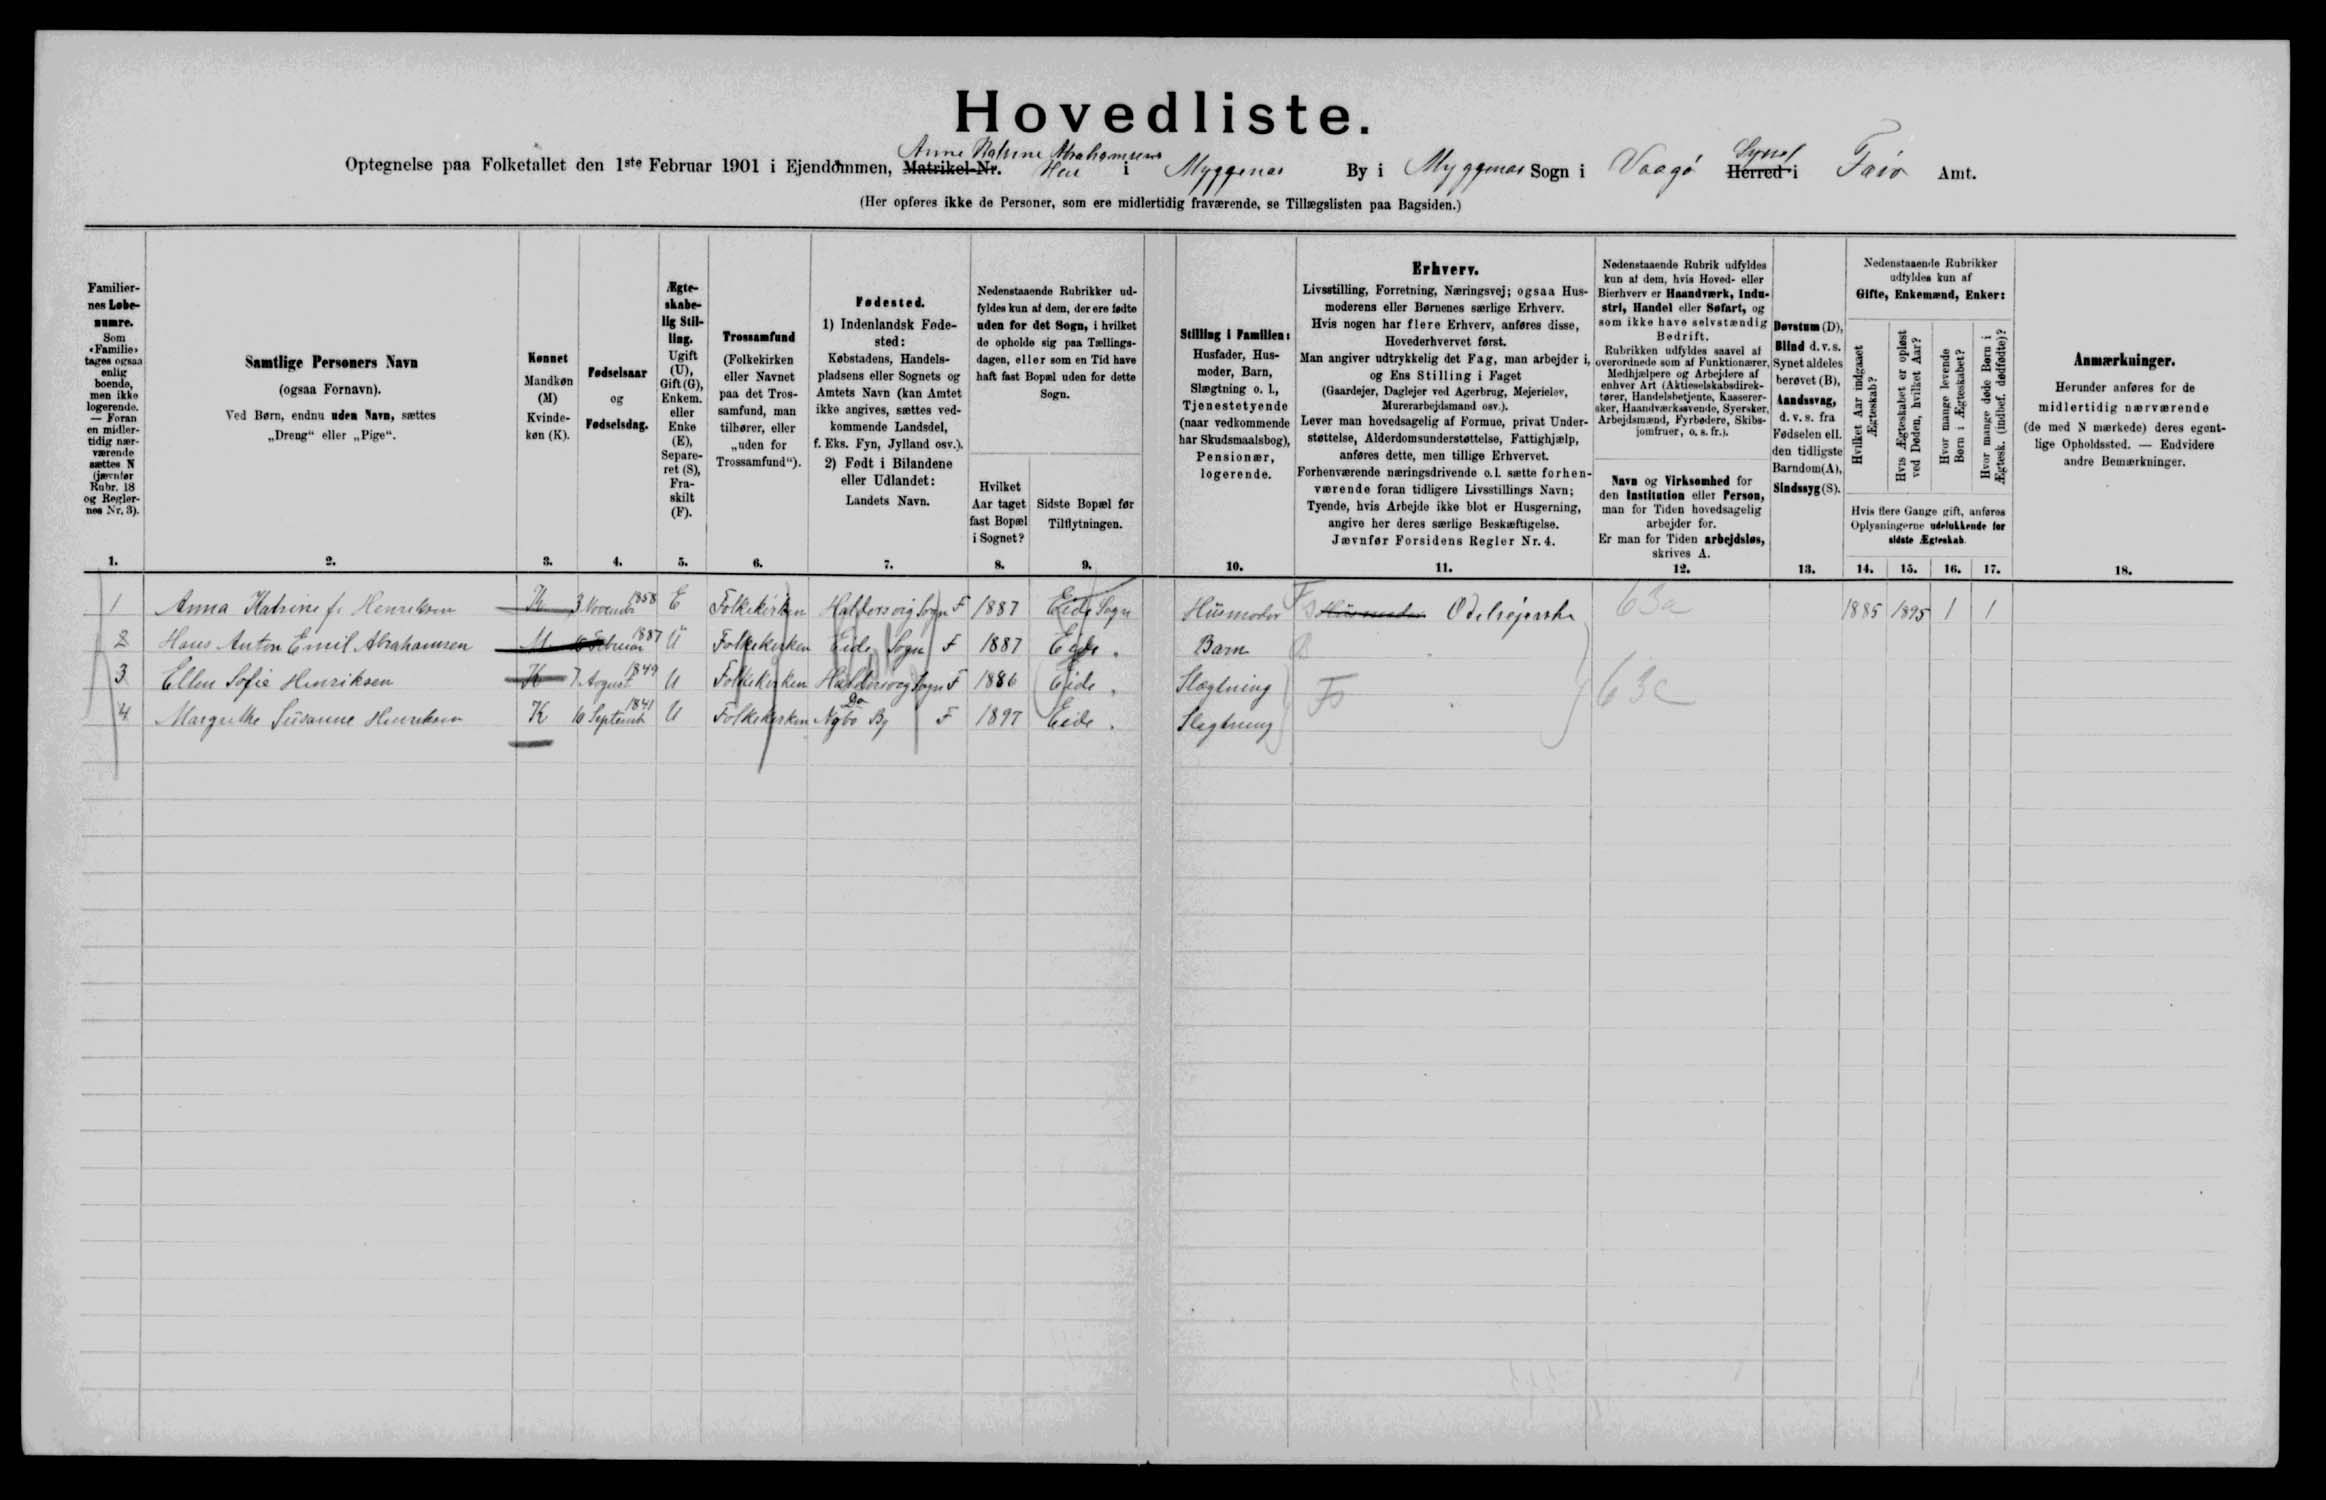 Hovedliste.
Anne Katrine Abrahamsens
Optegnelse paa Folketallet den 1ste Februar 1901 i Ejendommen, Matrikel-Nr. Hus i Myggenæs By i Myggenæs Sogn i Vaagø Syssel Herred i Færø Amt.
(Her opføres ikke de Personer, som ere midlertidig fraværende, se Tillægslisten paa Bagsiden.)
Familiernes Løbenumre. Som «Familie» tages ogsaa enlig boende, men ikke logerende. — Foran en midlertidig nærværende sættes N (jævnfør Rubr. 18 og Reglernes Nr. 3).
Samtlige Personers Navn
(ogsaa Fornavn).
Ved Børn, endnu uden Navn, sættes
„Dreng“ eller „Pige“.
Kønnet
Mandkøn (M)
Kvindekøn (K).
Fødselsaar
og
Fødselsdag.
Ægteskabelig Stilling.
Ugift (U), Gift (G), Enkem. eller Enke (E), Separeret (S), Fraskilt (F).
Trossamfund
(Folkekirken eller Navnet paa det Trossamfund, man tilhører, eller „uden for Trossamfund“).
Fødested.
1) Indenlandsk Fødested:
Købstadens, Handelspladsens eller Sognets og Amtets Navn (kan Amtet ikke angives, sættes vedkommende Landsdel, f. Eks. Fyn, Jylland osv.).
2) Født i Bilandene eller Udlandet:
Landets Navn.
Nedenstaaende Rubrikker udfyldes kun af dem, der ere fødte uden for det Sogn, i hvilket de opholde sig paa Tællingsdagen, eller som en Tid have haft fast Bopæl uden for dette Sogn.
Hvilket Aar taget fast Bopæl i Sognet?
Sidste Bopæl før Tilflytningen.
Stilling i Familien:
Husfader, Husmoder, Barn, Slægtning o. l., Tjenestetyende (naar vedkommende har Skudsmaalsbog), Pensionær, logerende.
Erhverv.
Livsstilling, Forretning, Næringsvej; ogsaa Husmoderens eller Børnenes særlige Erhverv.
Hvis nogen har flere Erhverv, anføres disse, Hovederhvervet først.
Man angiver udtrykkelig det Fag, man arbejder i, og Ens Stilling i Faget
(Gaardejer, Daglejer ved Agerbrug, Mejerielev, Murerarbejdsmand osv.).
Lever man hovedsagelig af Formue, privat Understøttelse, Alderdomsunderstøttelse, Fattighjælp, anføres dette, men tillige Erhvervet.
Forhenværende næringsdrivende o. l. sætte forhenværende foran tidligere Livsstillings Navn; Tyende, hvis Arbejde ikke blot er Husgerning, angive her deres særlige Beskæftigelse.
Jævnfør Forsidens Regler Nr. 4.
Nedenstaaende Rubrik udfyldes kun af dem, hvis Hoved- eller Bierhverv er Haandværk, Industri, Handel eller Søfart, og som ikke have selvstændig Bedrift.
Rubrikken udfyldes saavel af overordnede som af Funktionærer, Medhjælpere og Arbejdere af enhver Art (Aktieselskabsdirektører, Handelsbetjente, Kasserersker, Haandværkssvende, Syersker, Arbejdsmænd, Fyrbødere, Skibsjomfruer, o. s. fr.).
Navn og Virksomhed for den Institution eller Person, man for Tiden hovedsagelig arbejder for.
Er man for Tiden arbejdsløs, skrives A.
Døvstum (D), Blind d. v. s. Synet aldeles berøvet (B), Aandssvag, d. v. s. fra Fødselen ell. den tidligste Barndom (A), Sindssyg (S).
Nedenstaaende Rubrikker udfyldes kun af
Gifte, Enkemænd, Enker:
Hvilket Aar indgaaet Ægteskab?
Hvis Ægteskabet er opløst ved Døden, hvilket Aar?
Hvor mange levende Børn i Ægteskabet?
Hvor mange døde Børn i Ægtesk. (indbef. dødfødte)?
Hvis flere Gange gift, anføres Oplysningerne udelukkende for sidste Ægteskab.
Anmærkninger.
Herunder anføres for de midlertidig nærværende (de med N mærkede) deres egentlige Opholdssted. — Endvidere andre Bemærkninger.
1. 2. 3. 4. 5. 6. 7. 8. 9. 10. 11. 12. 13. 14. 15. 16. 17. 18.
1 Anna Katrine f. Henriksen K 3 November 1858 E Folkekirken Haldersvig Sogn F 1887 Eide Sogn Husmoder Fo Husmoder Odelsejerske 63a 1885 1895 1 1
2 Hans Anton Emil Abrahamsen M Februar 1887 U Folkekirken Eide Sogn F 1887 Eide „ Barn B
3 Ellen Sofie Henriksen K 7 August 1849 U Folkekirken Haldersvig Sogn F 1886 Eide „ Slægtning Fo 63c
4 Margrethe Susanne Henriksen K 10 Septemb 1841 U Folkekirken Do By F 1897 Eide „ Slægtning